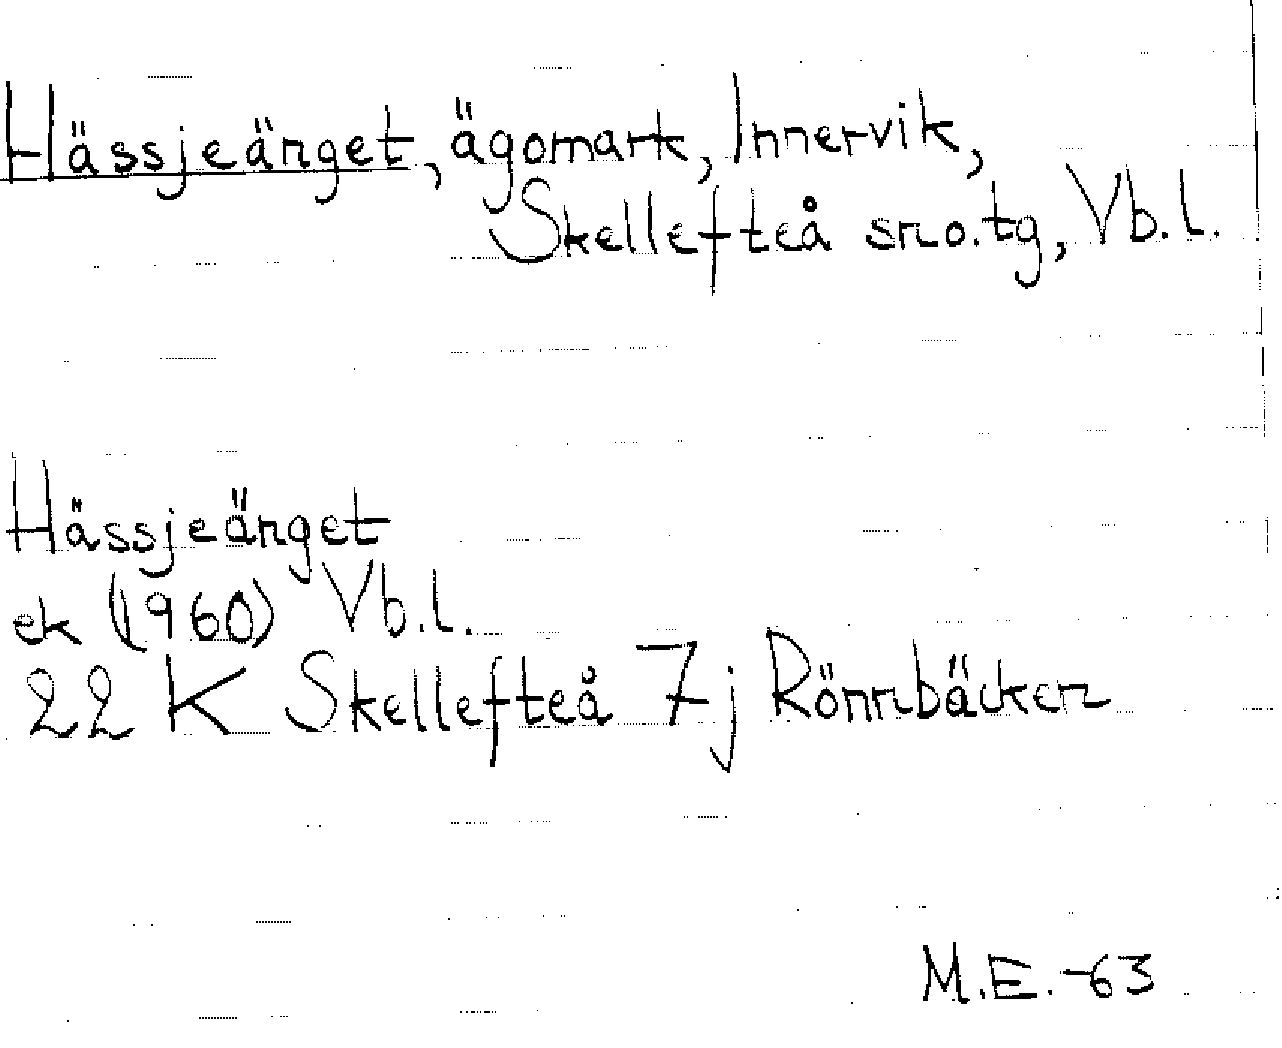 Hässjeänget, ägomark, Innervik,
Skellefteå sn o. tg, Vb. l.
Hässjeänget
ek (1960) Vb. l.
22 K Skellefteå 7j Rönnbäcken
M.E. -63